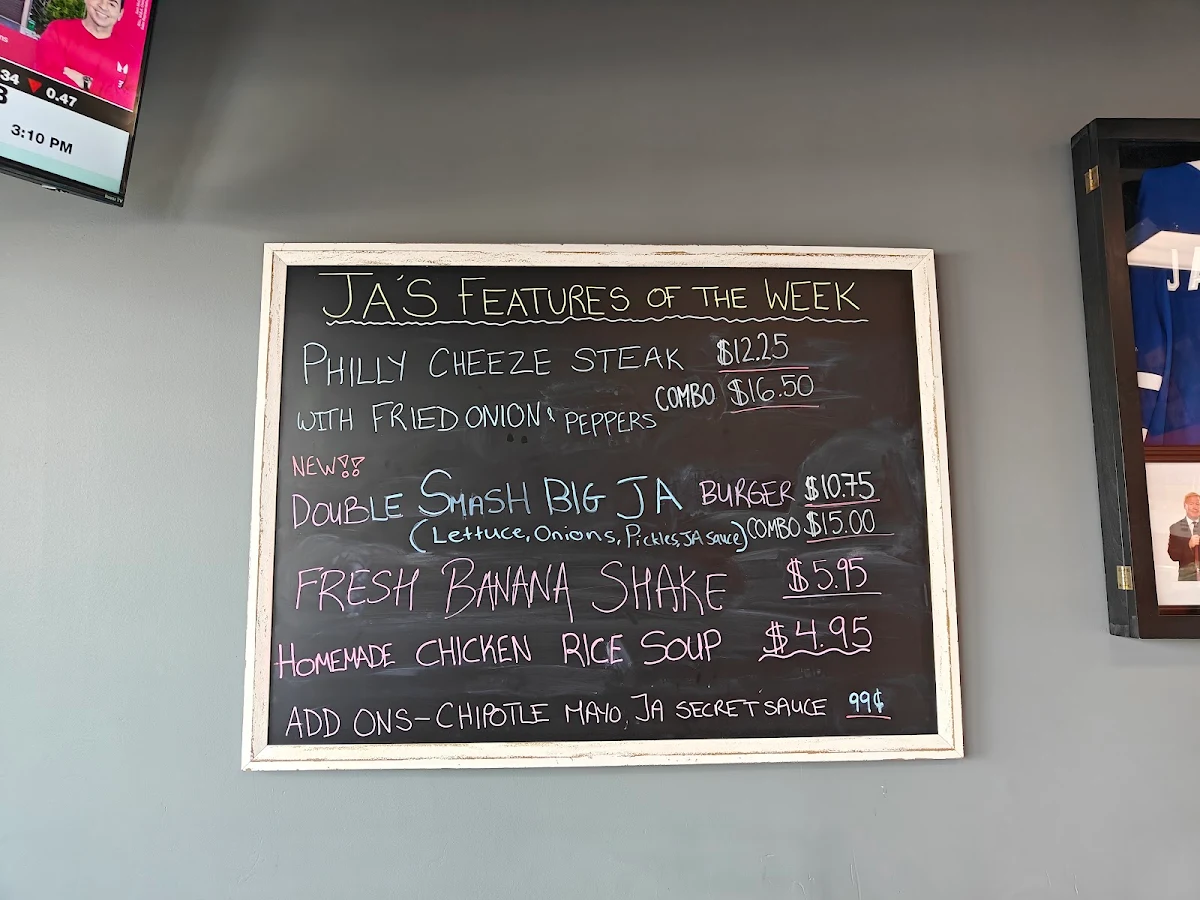 34 ▼ 0.47
3:10 PM
Roku TV
JA'S FEATURES OF THE WEEK
PHILLY CHEEZE STEAK $12.25
WITH FRIED ONION & PEPPERS COMBO $16.50
NEW!!
DOUBLE SMASH BIG JA BURGER $10.75
(Lettuce, Onions, Pickles, JA sauce) COMBO $15.00
FRESH BANANA SHAKE $5.95
HOMEMADE CHICKEN RICE SOUP $4.95
ADD ONS - CHIPOTLE MAYO, JA SECRET SAUCE 99¢
JA